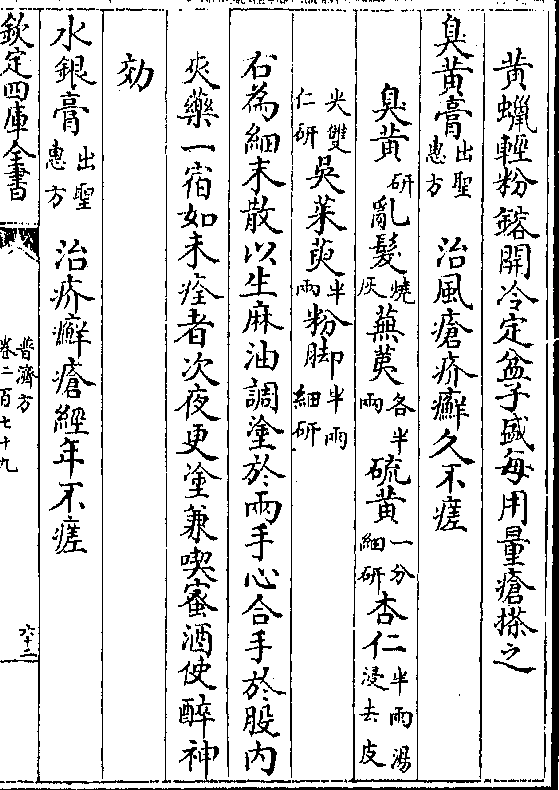 黄蠟輕粉鎔開冷定盆子盛每用量瘡搽之
臭黄膏出聖惠方　治風瘡疥癬久不瘥
臭黄研亂髮燒灰蕪荑各半兩硫黄一分細研杏仁半兩湯浸去皮
尖雙仁研吳茱萸半兩粉脚半兩細研
右為細末散以生麻油調塗於兩手心合手於股内
夾藥一宿如未痊者次夜更塗兼喫蜜酒使醉神
効
水銀膏出聖惠方　治疥癬瘡經年不瘥
欽定四庫全書
普濟方
卷二百七十九
六十二